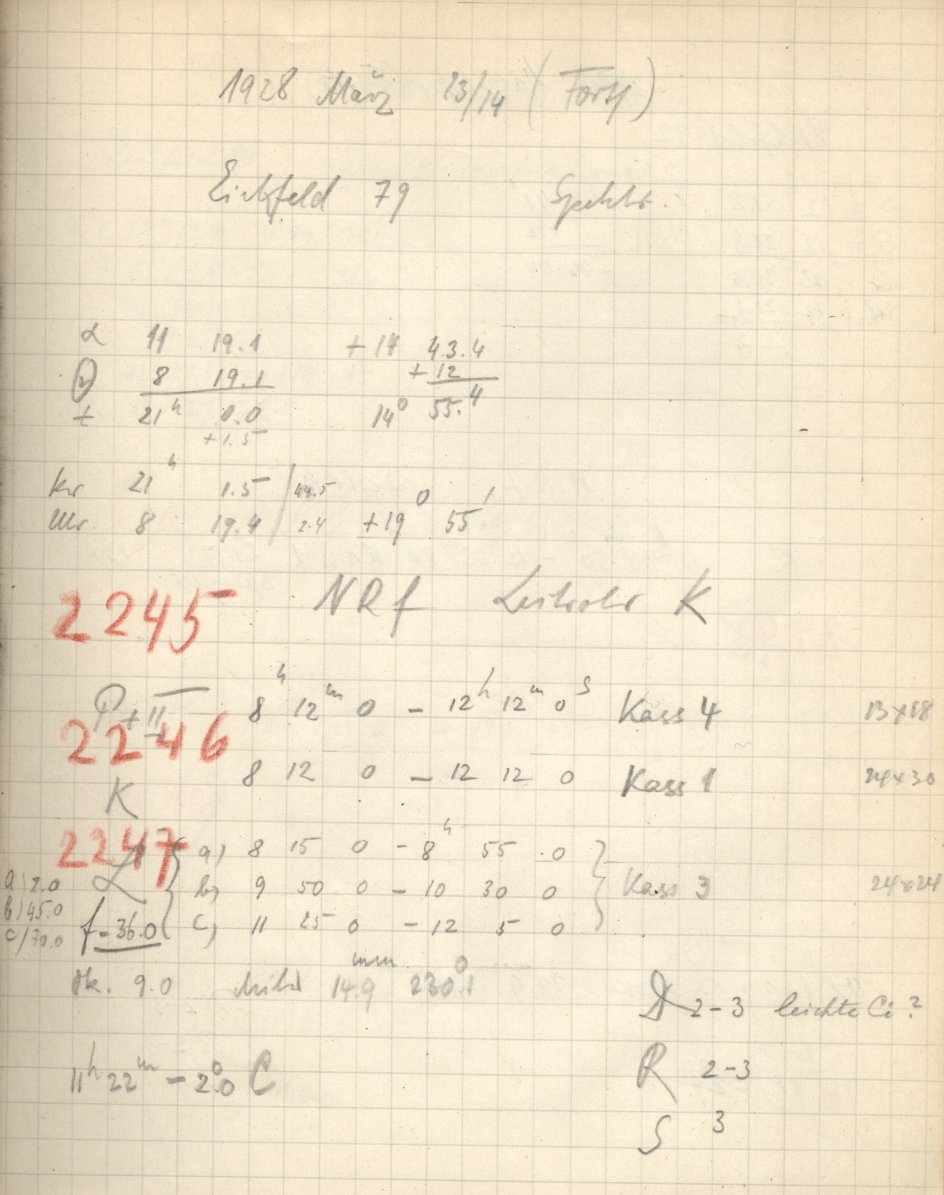 1928 März 13/14 (Forts)
Eichfeld 79 Spektr.
α 11 19.1 +14 43.4
8 19.1 +12
t 21h 0.0 14° 55.4
+1.5
Kr 21h 1.5 44.5
Ur. 8 19.4 2.4 +19° 55'
2245 NRf Leitrohr K
P+II 8h 12m 0 - 12h 12m 0s Kass 4 13x18
2246
K 8 12 0 - 12 12 0 Kass 1 24x30
2247 a) 8 15 0 - 8h 55 0
a) 2.0 L b) 9 50 0 - 10 30 0 Kass 3 24x24
b) 45.0
c) 70.0 f=36.0 c) 11 25 0 - 12 5 0
Ok. 9.0 14.9mm 230°
D 2-3 leichte Ci?
11h 22m -2°.0 C R 2-3
S 3